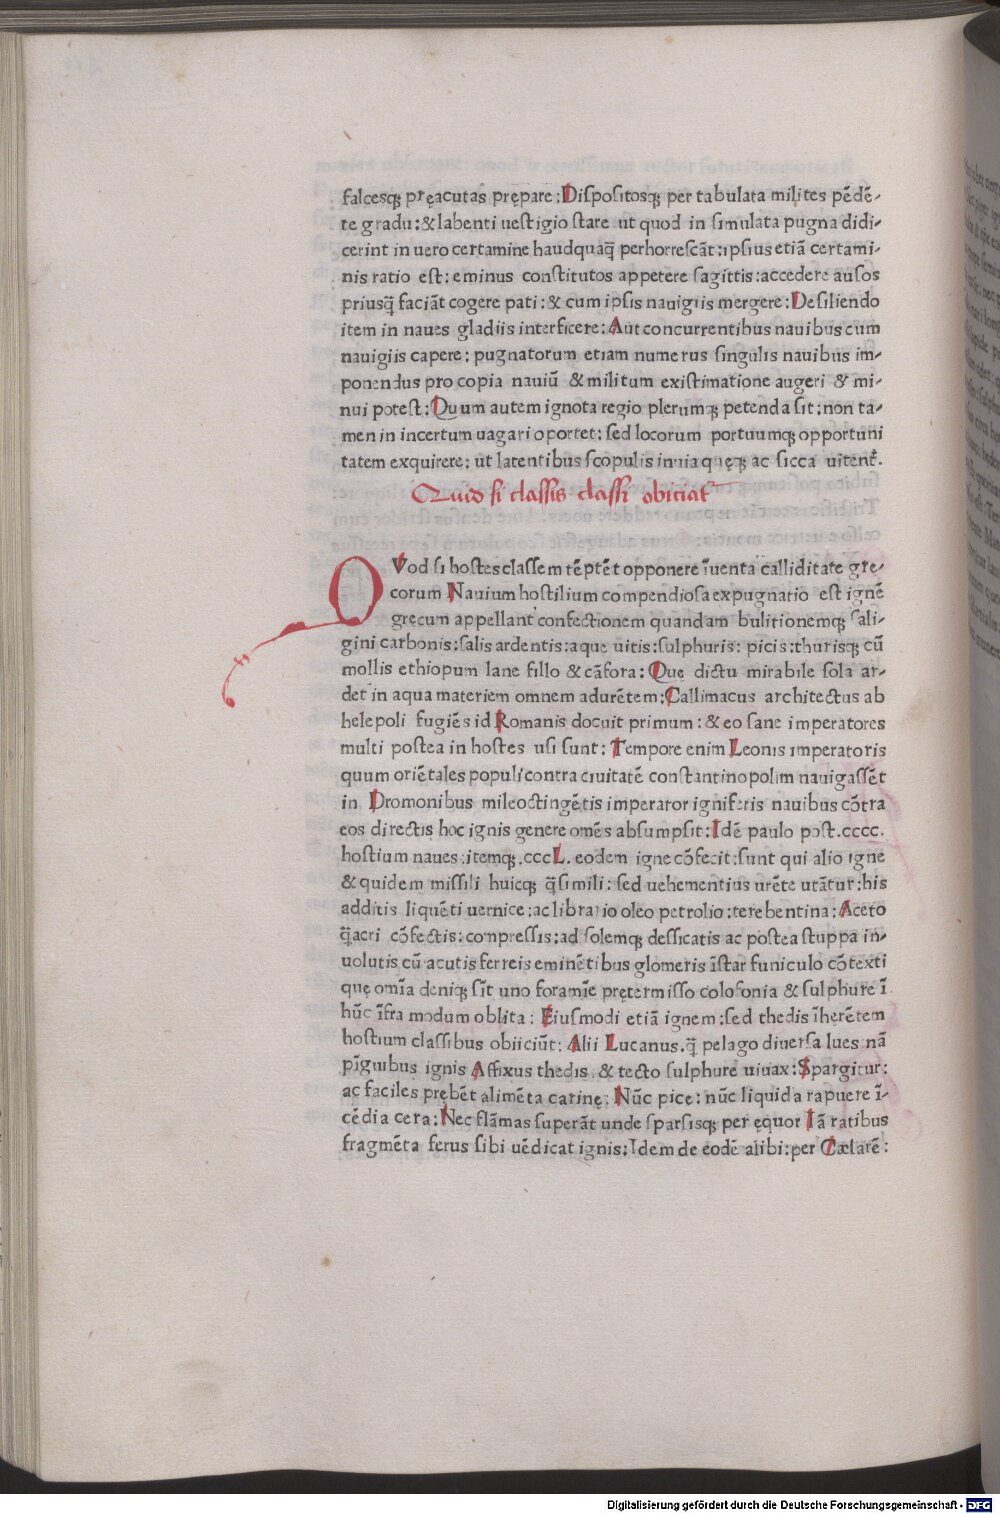 falcesqꝫ pręacutas prępare: Dispositosqꝫ per tabulata milites pēdē-
te gradu: & labenti uestigio stare ut quod in simulata pugna didi-
cerint in uero certamine haudquaq̄ perhorrescāt: ipsius etiā certami-
nis ratio est: eminus constitutos appetere sagittis: accedere ausos
priusq̄ faciāt cogere pati: & cum ipsis nauigiis mergere: Desiliendo
item in naues gladiis interficere: Aut concurrentibus nauibus cum
nauigiis capere: pugnatorum etiam numerus singulis nauibus im-
ponendus pro copia nauiū & militum existimatione augeri & mi-
nui potest: Quum autem ignota regio plerumqꝫ petenda sit: non ta-
men in incertum uagari oportet: sed locorum portuumqꝫ opportuni
tatem exquirere: ut latentibus scopulis inuia quęqꝫ ac sicca uitent᷑.
Quid si classis classi obiciat᷑
QVod si hostes classem tēptēt opponere īuenta calliditate grę-
corum Nauium hostilium compendiosa expugnatio est ignē
gręcum appellant confectionem quandam bulitionemqꝫ sali-
gini carbonis: salis ardentis: aque uitis: sulphuris: picis: thurisqꝫ cū
mollis ethiopum lane fillo & cāfora: Quę dictu mirabile sola ar-
det in aqua materiem omnem adurētem: Callimacus architectus ab
helepoli fugiēs id Romanis docuit primum: & eo sane imperatores
multi postea in hostes usi sunt: Tempore enim Leonis imperatoris
quum oriētales populi contra ciuitatē constantinopolim nauigassēt
in Dromonibus mileoctingētis imperator igniferis nauibus cōtra
eos directis hoc ignis genere omēs absumpsit: Idē paulo post.cccc.
hostium naues: itemqꝫ.cccL. eodem igne cōfecit: sunt qui alio igne
& quidem missili huicqꝫ q̄simili: sed uehementius urēte utātur: his
additis liquēti uernice: ac librario oleo petrolio: terebentina: Aceto
q̄acri cōfectis: conpressis: ad solemqꝫ dessicatis ac postea stuppa in-
uolutis cū acutis ferreis eminētibus glomeris īstar funiculo cōtexti
quę omīa deniqꝫ sīt uno foramīe pretermisso colofonia & sulphure ī
hūc īfra modum oblita: Eiusmodi etiā ignem: sed thedis īherētem
hostium classibus obiiciūt: Alii Lucanus.q̄ pelago diuersa lues nā
pīguibus ignis Affixus thedis & tecto sulphure uiuax: Spargitur:
ac faciles prębēt alimēta carinę: Nūc pice: nūc liquida rapuere ī-
cēdia cera: Nec flāmas superāt unde sparsisqꝫ per ęquor Iā ratibus
fragmēta ferus sibi uēdicat ignis: Idem de eodē alibi: per Cælarē:
Digitalisierung gefördert durch die Deutsche Forschungsgemeinschaft - DFG